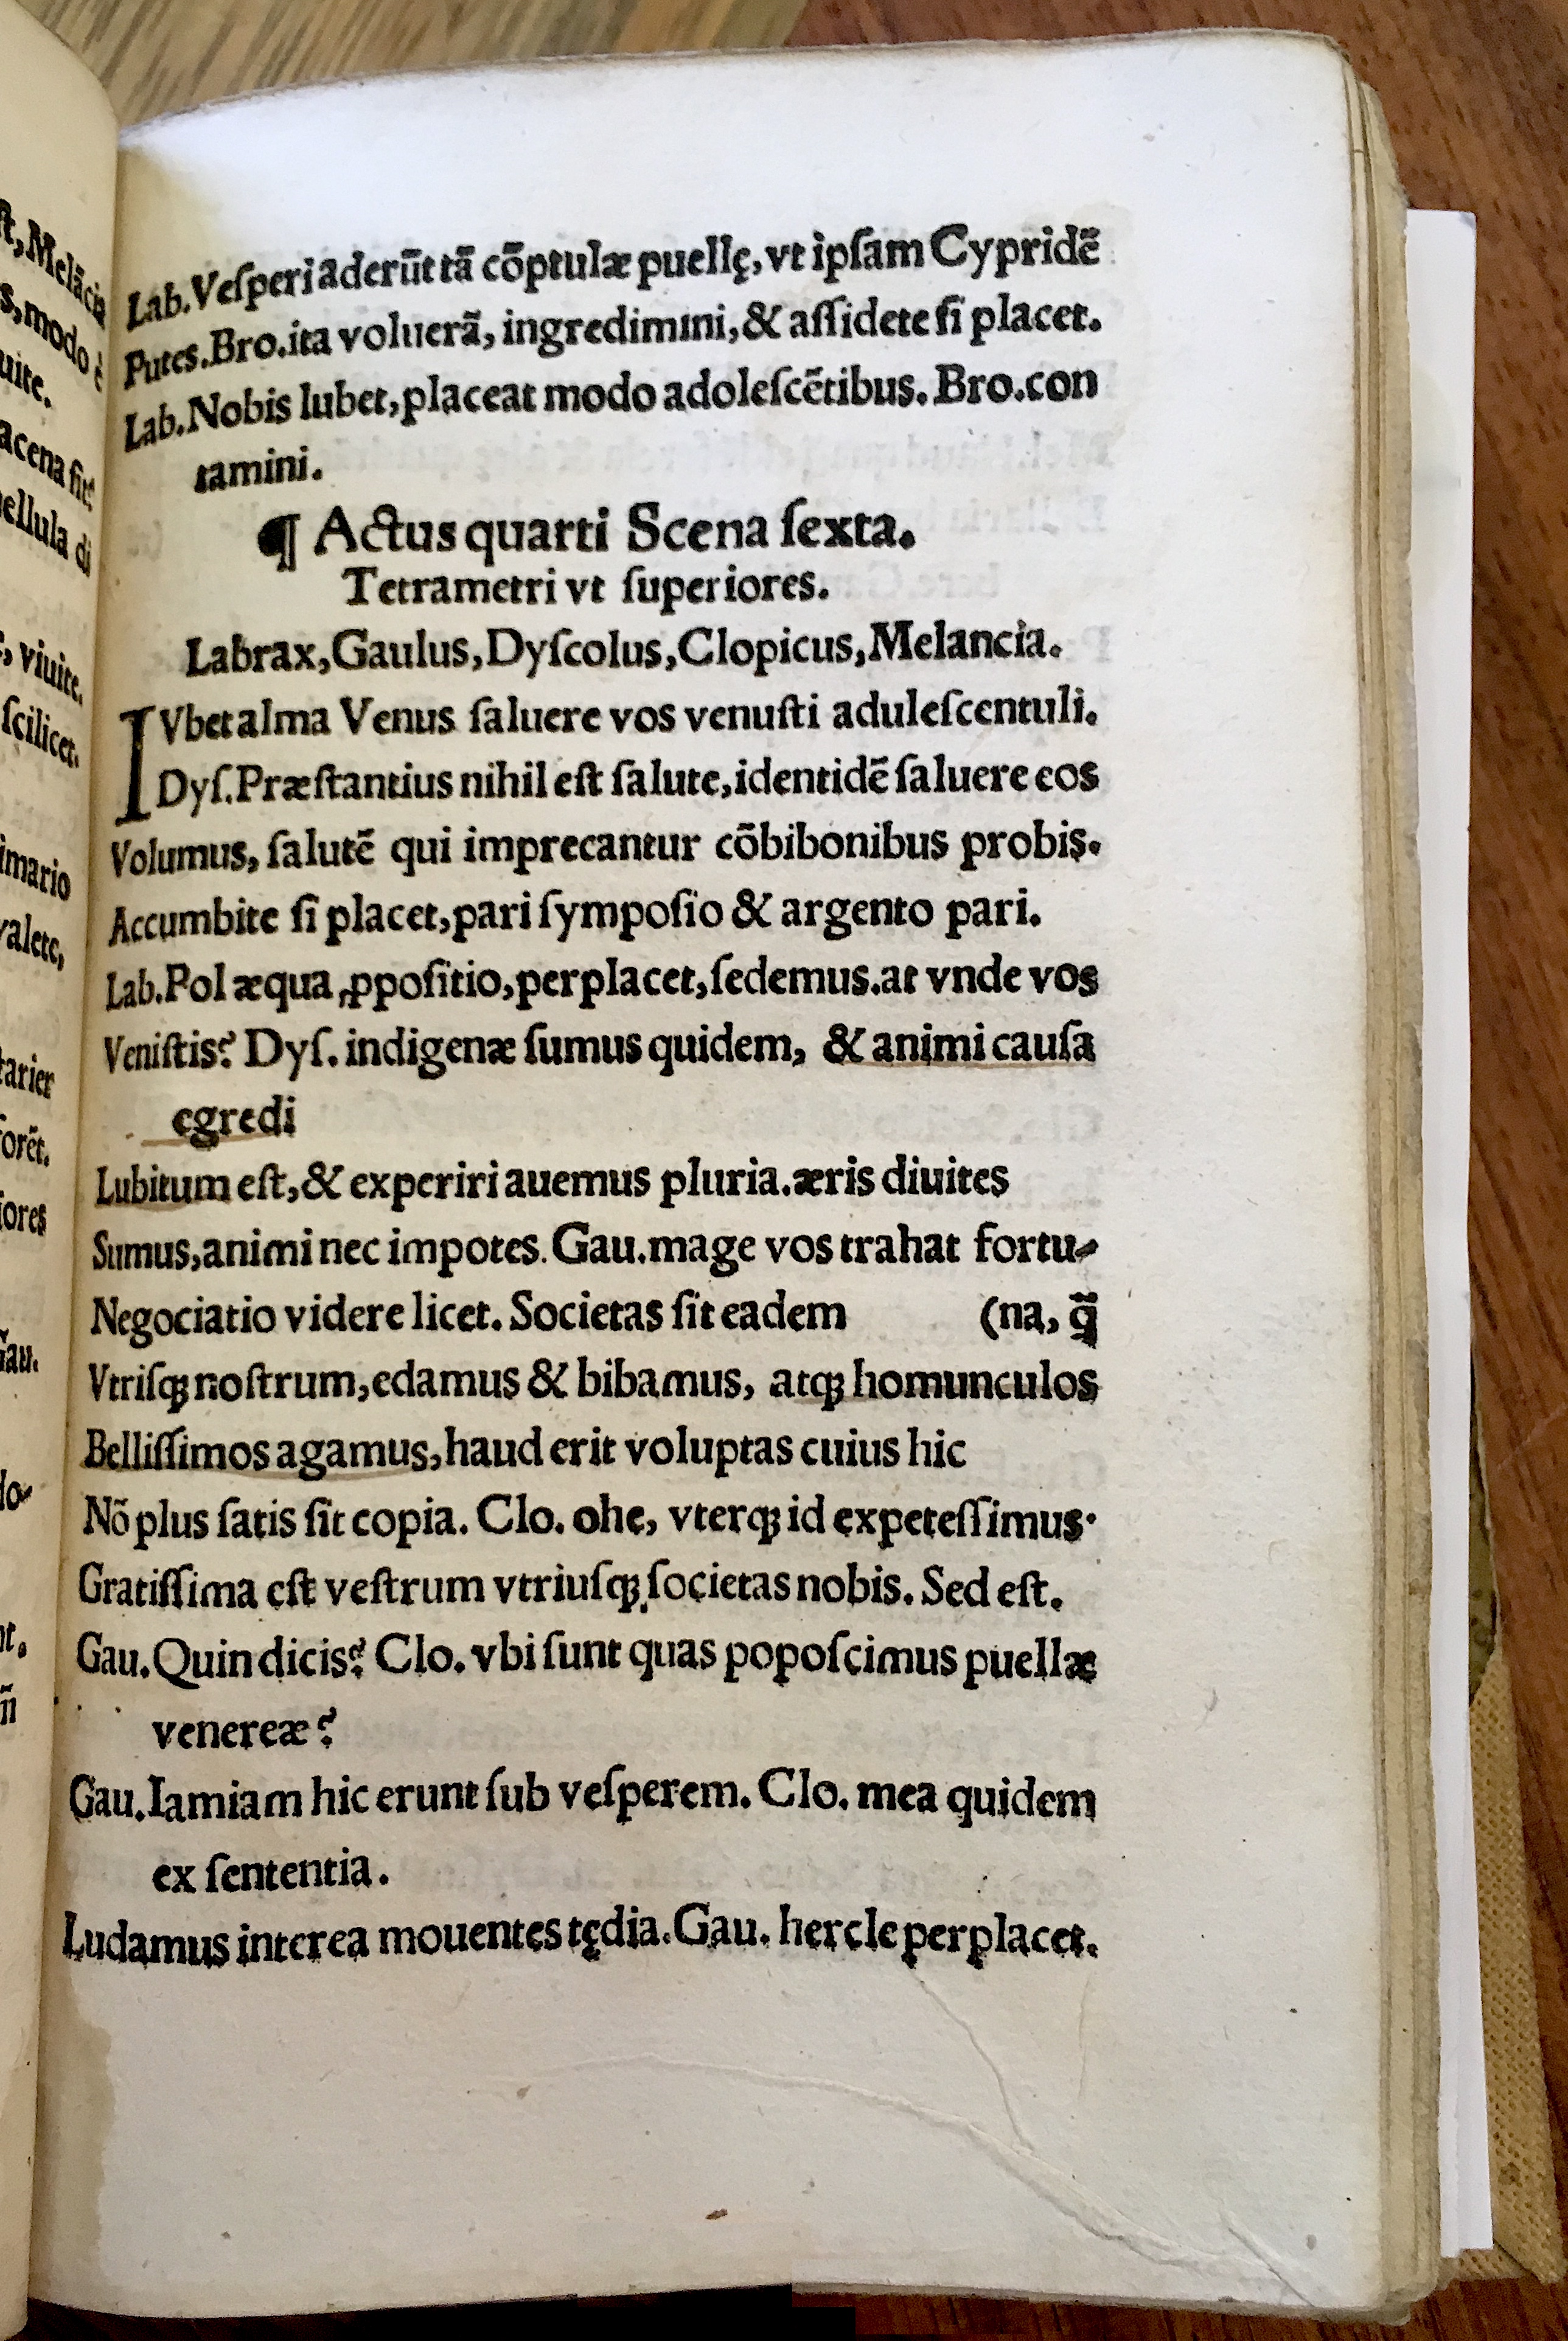 Lab.Veſperi aderūt tā cōptulæ puellę, vt ipſam Cypridē
Putes.Bro.ita voluerā, ingredimini,& aſſidete ſi placet.
Lab.Nobis lubet,placeat modo adoleſcētibus.Bro.con
tamini.
¶ Actus quarti Scena ſexta.
Tetrametri vt ſuperiores.
Labrax,Gaulus,Dyſcolus,Clopicus,Melancia.
IVbet alma Venus ſaluere vos venuſti aduleſcentuli.
Dyſ.Præſtantius nihil eſt ſalute,identidē ſaluere eos
Volumus, ſalutē qui imprecantur cōbibonibus probis.
Accumbite ſi placet,pari ſympoſio & argento pari.
Lab.Pol æqua ꝓpoſitio,perplacet,ſedemus.at vnde vos
Veniſtis? Dyſ. indigenæ ſumus quidem, & animi cauſa
egredi
Lubitum eſt,& experiri auemus pluria.æris diuites
Sumus,animi nec impotes. Gau.mage vos trahat fortu-
Negociatio videre licet. Societas ſit eadem (na, q̃
Vtriſqꝫ noſtrum,edamus & bibamus, atqꝫ homunculos
Belliſſimos agamus,haud erit voluptas cuius hic
Nō plus ſatis ſit copia. Clo. ohe, vterqꝫ id expeteſſimus.
Gratiſſima eſt veſtrum vtriuſqꝫ ſocietas nobis. Sed eſt.
Gau.Quin dicis? Clo. vbi ſunt quas popoſcimus puellæ
venereæ?
Gau.Iamiam hic erunt ſub veſperem. Clo. mea quidem
ex ſententia.
Ludamus interea mouentes tędia.Gau. hercle perplacet.